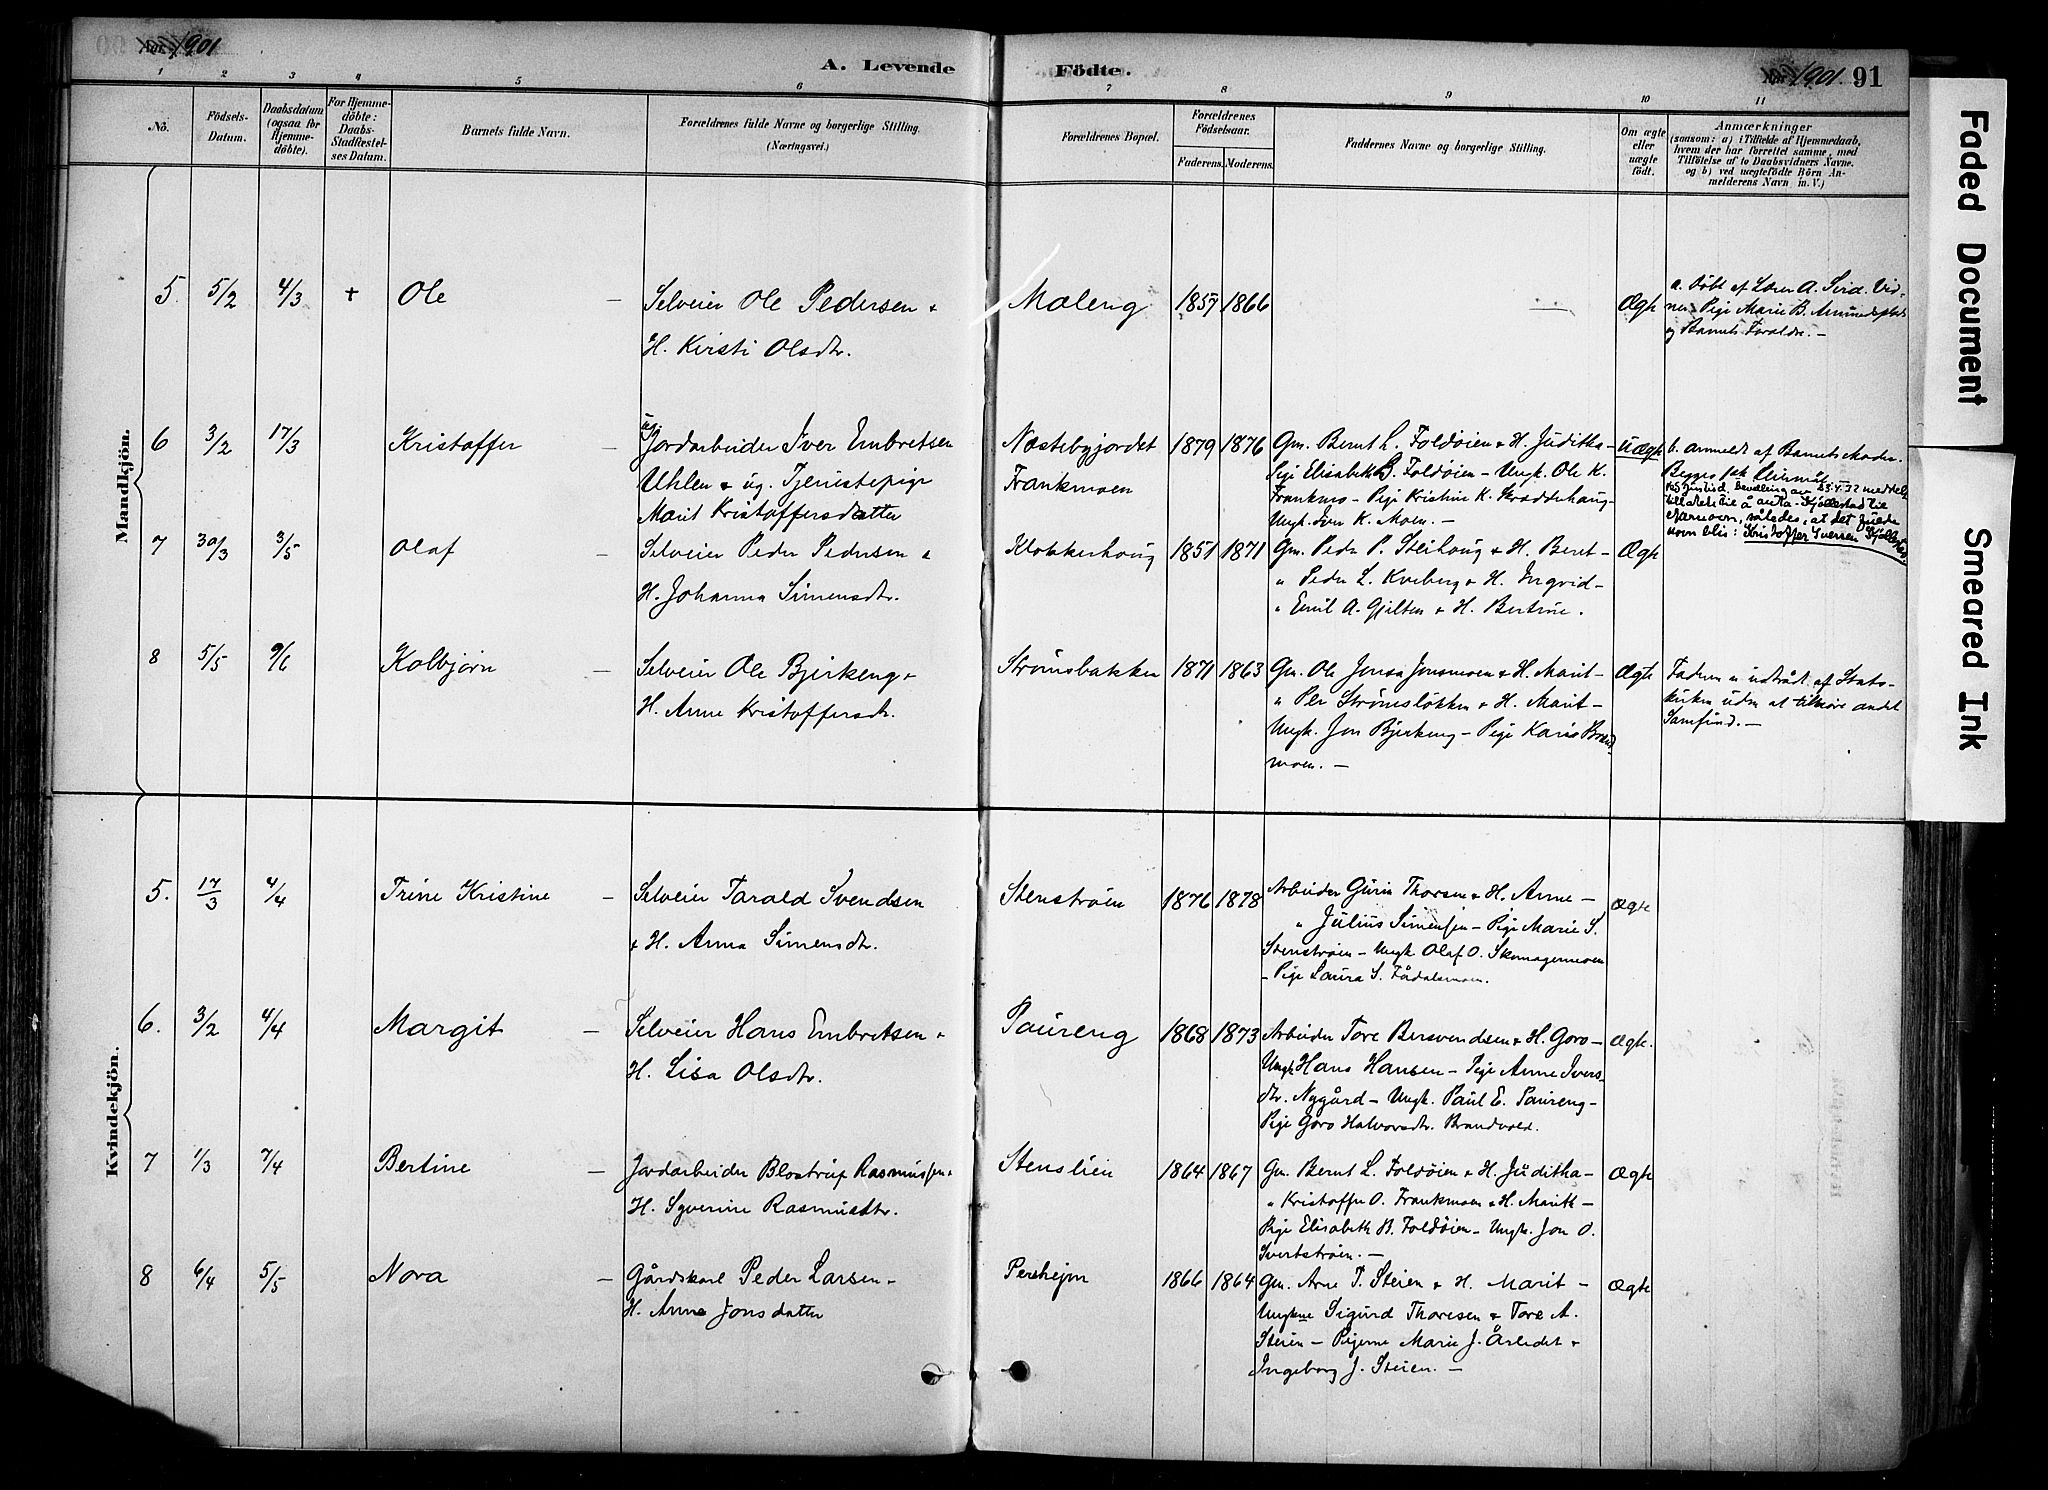 Aar 1901
A. Levende Födte.
Aar 1901. 91
1 2 3 4 5 6 7 8 9 10 11
No.
Födsels-Datum.
Daabsdatum (ogsaa for Hjemme-döbte).
For Hjemme-döbte: Daabs-Stadfæstel-ses Datum.
Barnets fulde Navn.
Forældrenes fulde Navne og borgerlige Stilling.
(Næringsvei.)
Forældrenes Bopæl.
Forældrenes Födselsaar.
Faderens. Moderens.
Faddernes Navne og borgerlige Stilling.
Om ægte eller uægte födt.
Anmærkninger
(saasom: a) i Tilfælde af Hjemmedaab,
hvem der har forrettet samme, med
Tilföielse af to Daabsvidners Navne.
og b) ved uægtefödte Börn An-
melderens Navn m. V.)
Mandkjön.
5. 5/2 4/3 + Ole – Selveier Ole Pedersen &
H. Kirsti Olsdtr.
Moleng 1857 1866 — Ægte
a. Döbt af Lærer A. Svrd. Vid-
ner Pige Marie B.
og Barnets Forældre. –
6 3/2 17/3 Kristoffer – ug. Jordarbeider Iver Embretsen
Uhlen & ug. Tjenestepige
Marit Kristoffersdatter
Næstebyjordet 1879 1876
Frankmoen
Gm. Bernt L. Foldöien & H. Juditha –
Pige Elisabeth B. Foldöien – Ungk. Ole K.
Frankmo – Pige Kristine K. Kradderhaug –
Ungk. Iver K. Moen. –
Uægte
b. anmeldt af Barnets Moder.
Begges
bevilling av 25.4.32 meddelt
tillatelse til å anta Kjöllestad til
efternavn, således, at det fulde
navn blir: Kristoffer Iversen Kjöllestad
7 30/3 3/5 Olaf – Selveier Peder Pedersen &
H. Johanna Simensdtr.
Klokkerhaug 1851 1871
Gm. Peder P. Steihaug & H. Beret –
" Peder L. Kveberg & H. Ingrid –
" Emil A. Gjelten & H. Bertine.
Ægte
8 5/5 9/6 Kolbjörn – Selveier Ole Bjerkeng &
H. Anne Kristoffersdtr.
Strömsbakken 1871 1863
Gm. Ole Jonsa Jonsmoen & H. Marit –
" Per Strömslökken & H. Marit –
Ungk. Jon Bjerkeng – Pige Kari Brand
moen. –
Ægte
Faderen er udtraadt af Stats-
kirken uden at tilhöre andet
Samfund. –
Kvindekjön.
5. 17/3 4/4 Trine Kristine – Selveier Tarald Svendsen
& H. Anna Simensdtr.
Stenströen 1876 1878
Arbeider Gurin Thorsen & H. Anne –
" Julius Simensen – Pige Marie S.
Stenströen – Ungk Olaf O. Skomagermoen
– Pige Laura S. Fådalsmoen.
Ægte
6. 3/2 4/4 Margit – Selveier Hans Embretsen &
H. Lisa Olsdtr.
Paureng 1868 1873
Arbeider Tore Bersvendsen & H. Goro –
Ungk Hans Hansen – Pige Anne Ivers-
dtr. Nygård – Ungk. Paul E. Paureng –
Pige Goro Halvorsdtr. Brandvold.
Ægte.
7 1/3 7/4 Bertine – Jordarbeider Blostrup Rasmussen &
H. Syverine Rasmusdtr.
Stenslien 1864 1867
Gm. Bernt L. Foldöien & H. Juditha –
" Kristoffer O. Frankmoen & H. Marith –
Pige Elisabeth B. Foldöien – Ungk. Jon O.
Svertströen. –
Ægte
8 6/4 5/5 Nora – Gårdskarl Peder Larsen –
H. Anne Jonsdatter
Persheim 1866 1864
Gm. Arne T. Steien & H. Marit –
Ungkne Sigurd Thoresen & Tore A.
Steien – Pigerne Marie J. Årledet &
Ingeborg J. Steien. –
Ægte
Faded Document
Smeared Ink